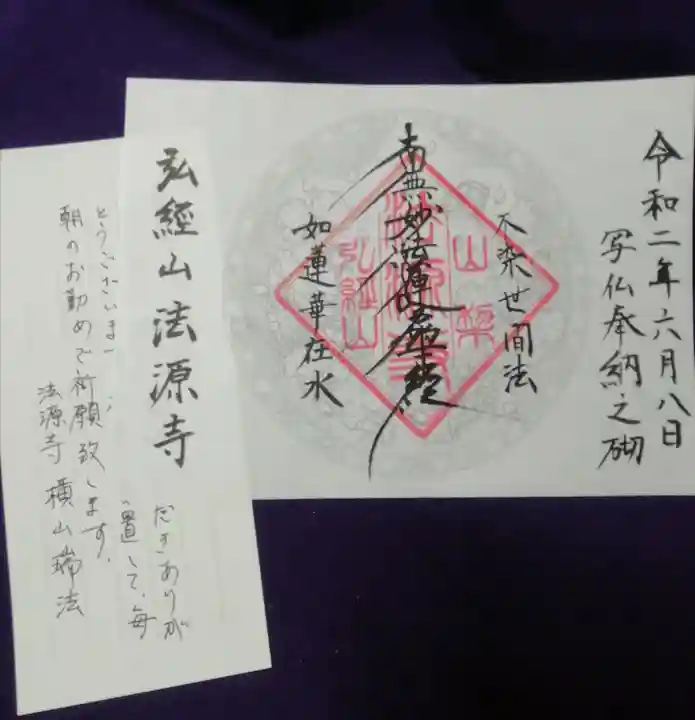 令和二年六月八日
写仏奉納之砌
不染世間法
南無妙法蓮華経
如蓮華在水
山梨
法源寺
弘経山
弘經山法源寺
だきありが
とうございま
置して、毎
朝のお勤めで祈願致します。
法源寺 横山瑞法